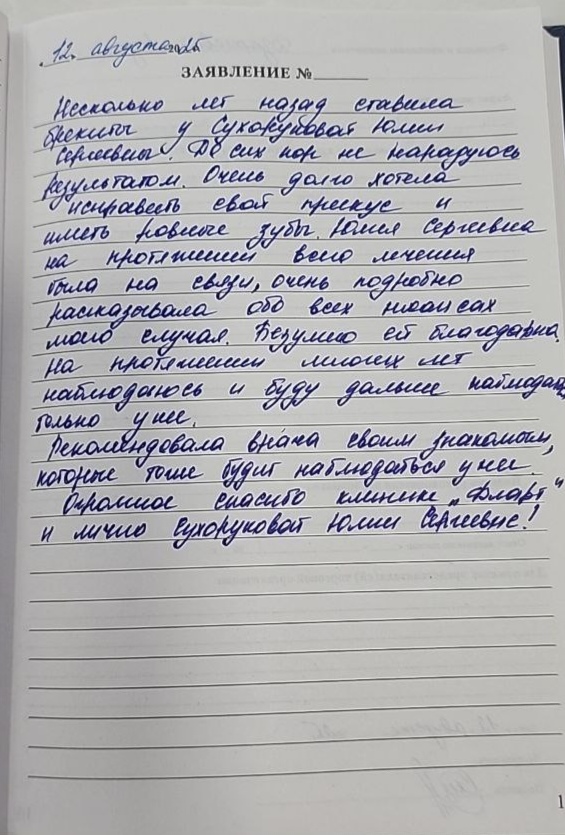 12. августа 2025
ЗАЯВЛЕНИЕ №
Несколько лет назад ставила
брекиты у Сухоруковой Юлии
Сергеевны. До сих пор не нарадуюсь
результатом. Очень долго хотела
исправить свой прикус и
иметь ровные зубы. Юлия Сергеевна
на протяжении всего лечения
была на связи, очень подробно
рассказывала обо всех нюансах
моего случая. Безумно ей благодарна.
На протяжении многих лет
наблюдаюсь и буду дальше наблюдаться
только у нее.
Рекомендовала врача своим знакомым,
которые тоже будут наблюдаться у нее.
Огромное спасибо клинике „Дларт"
и лично Сухоруковой Юлии Сергеевне!
1